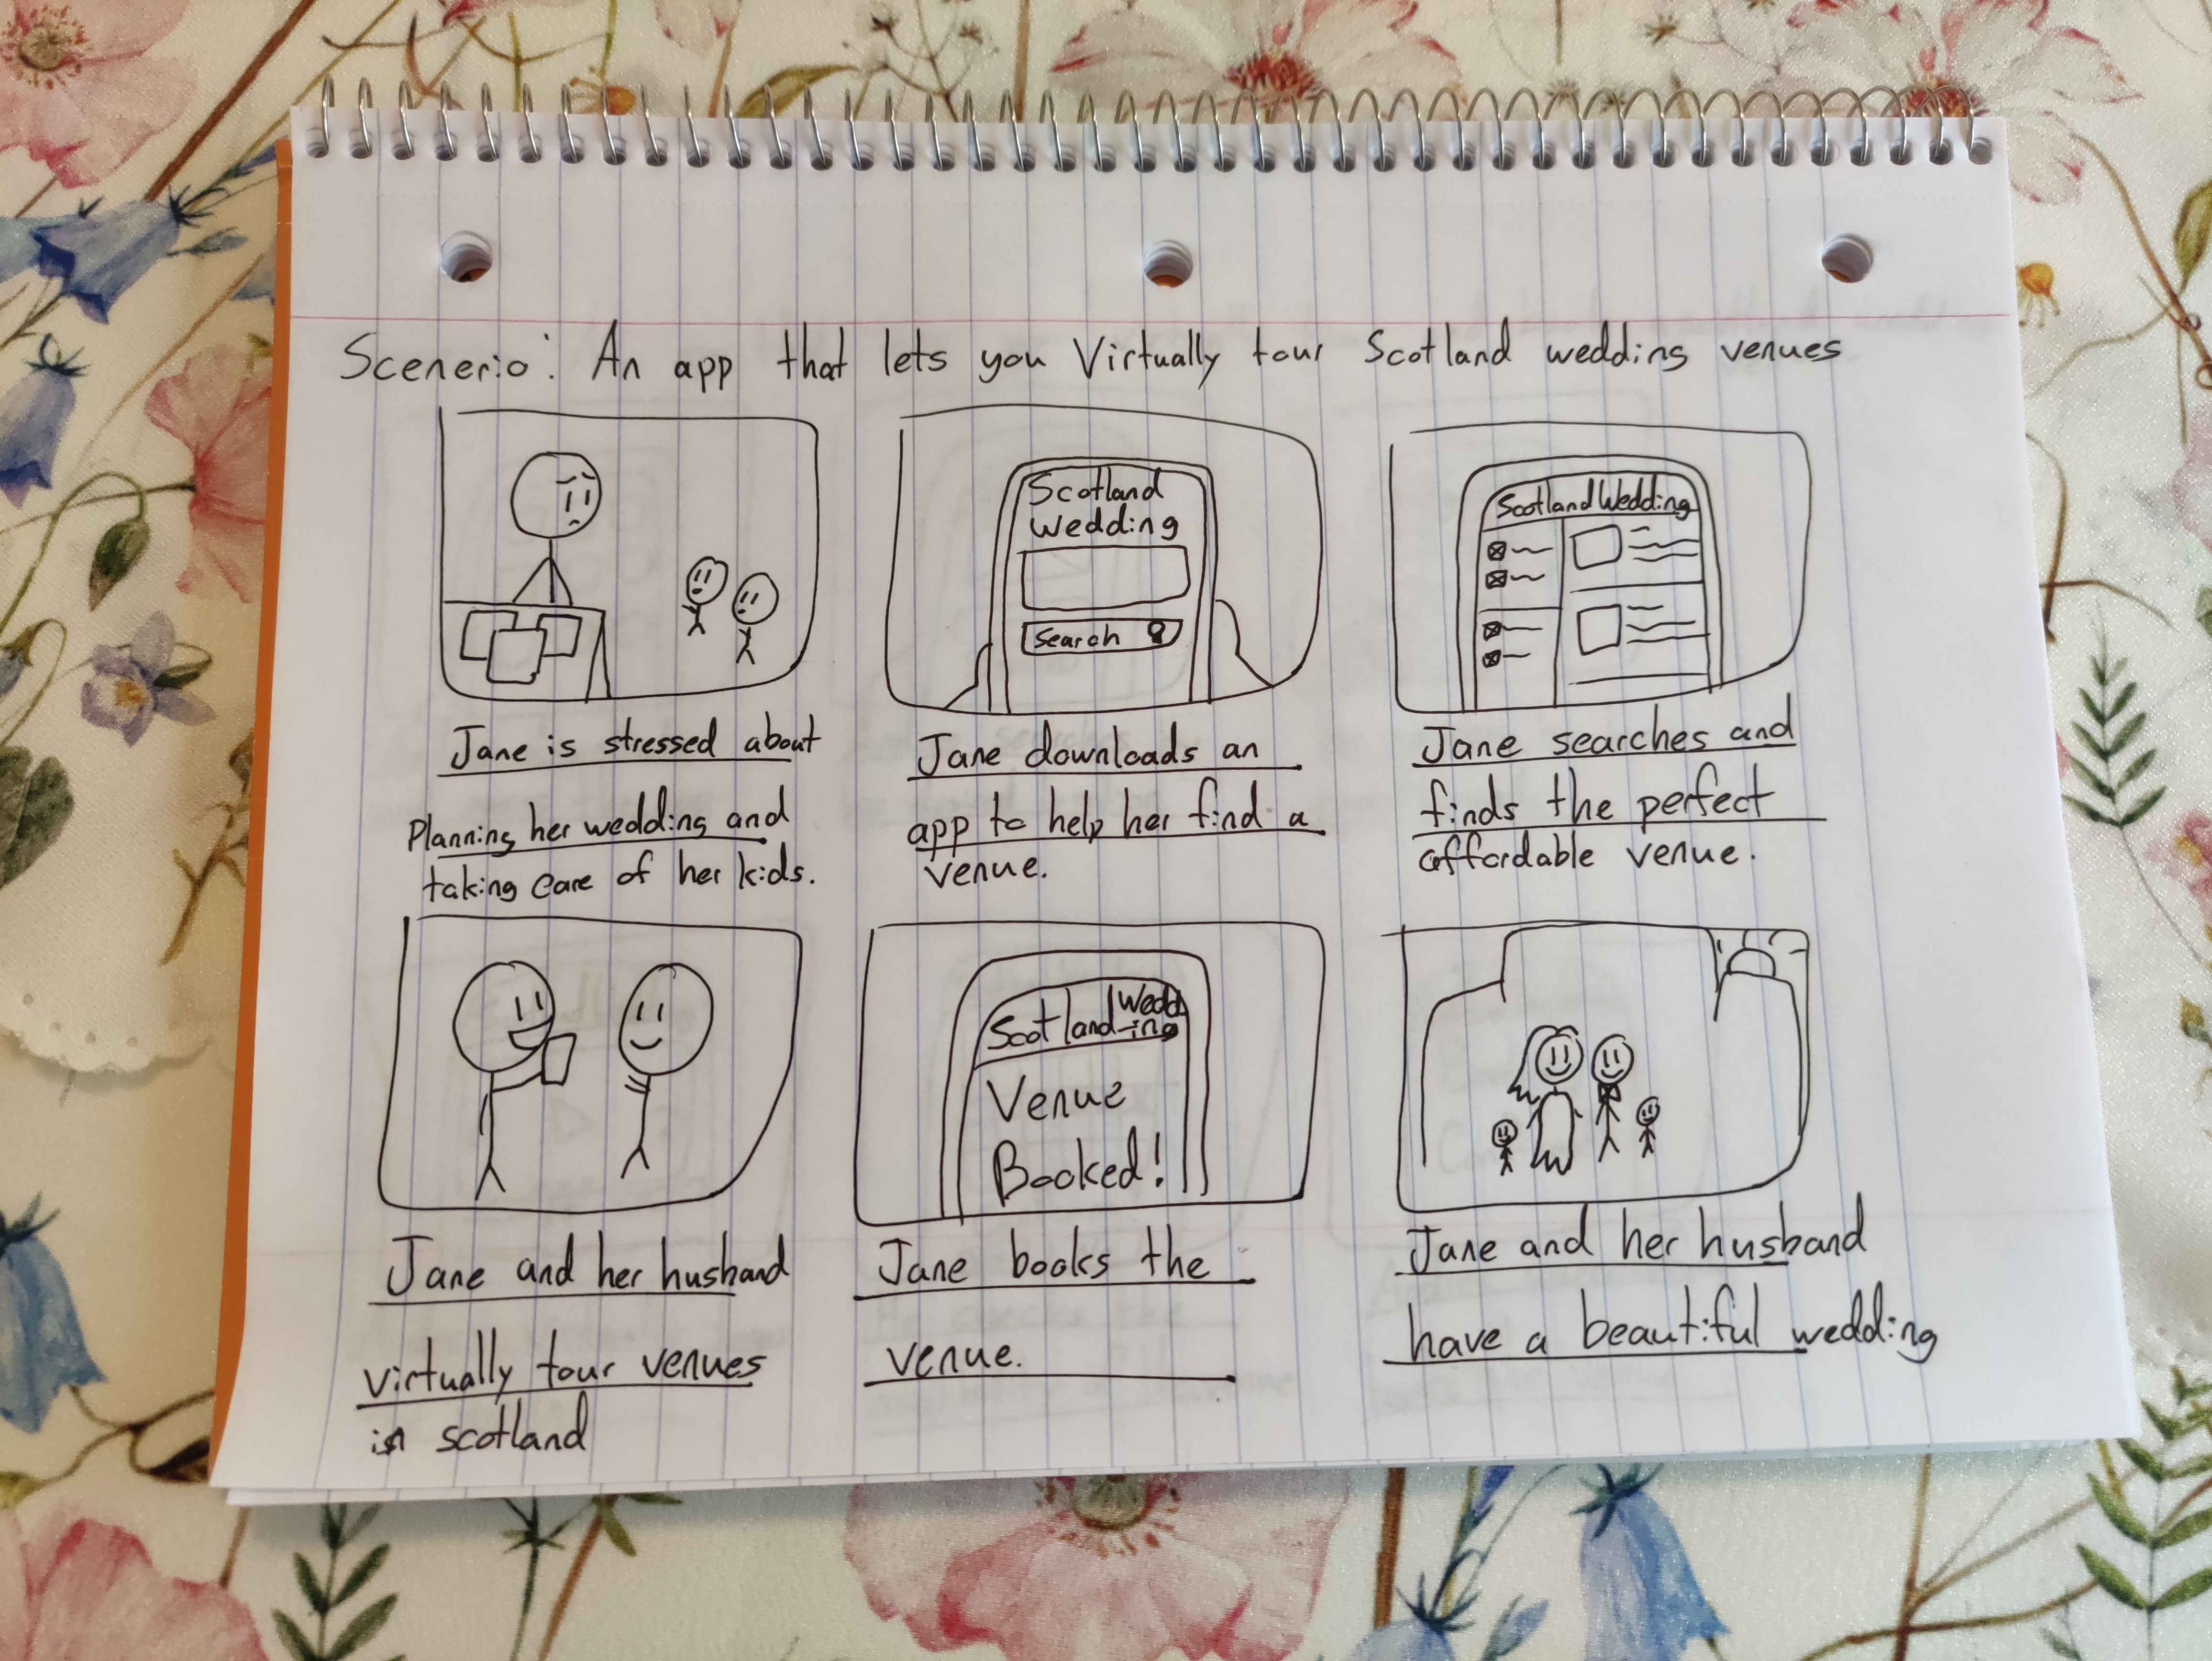 Scenerio: An app that lets you Virtually tour Scotland wedding venues
Scotland
wedding
Search
Scotland Wedding
Jane is stressed about
Planning her wedding and
taking care of her kids.
Jane downloads an
app to help her find a
venue.
Jane searches and
finds the perfect
affordable venue.
Scotland Wedd
-ing
Venue
Booked!
Jane and her husband
virtually tour venues
in scotland
Jane books the
venue.
Jane and her husband
have a beautiful wedding